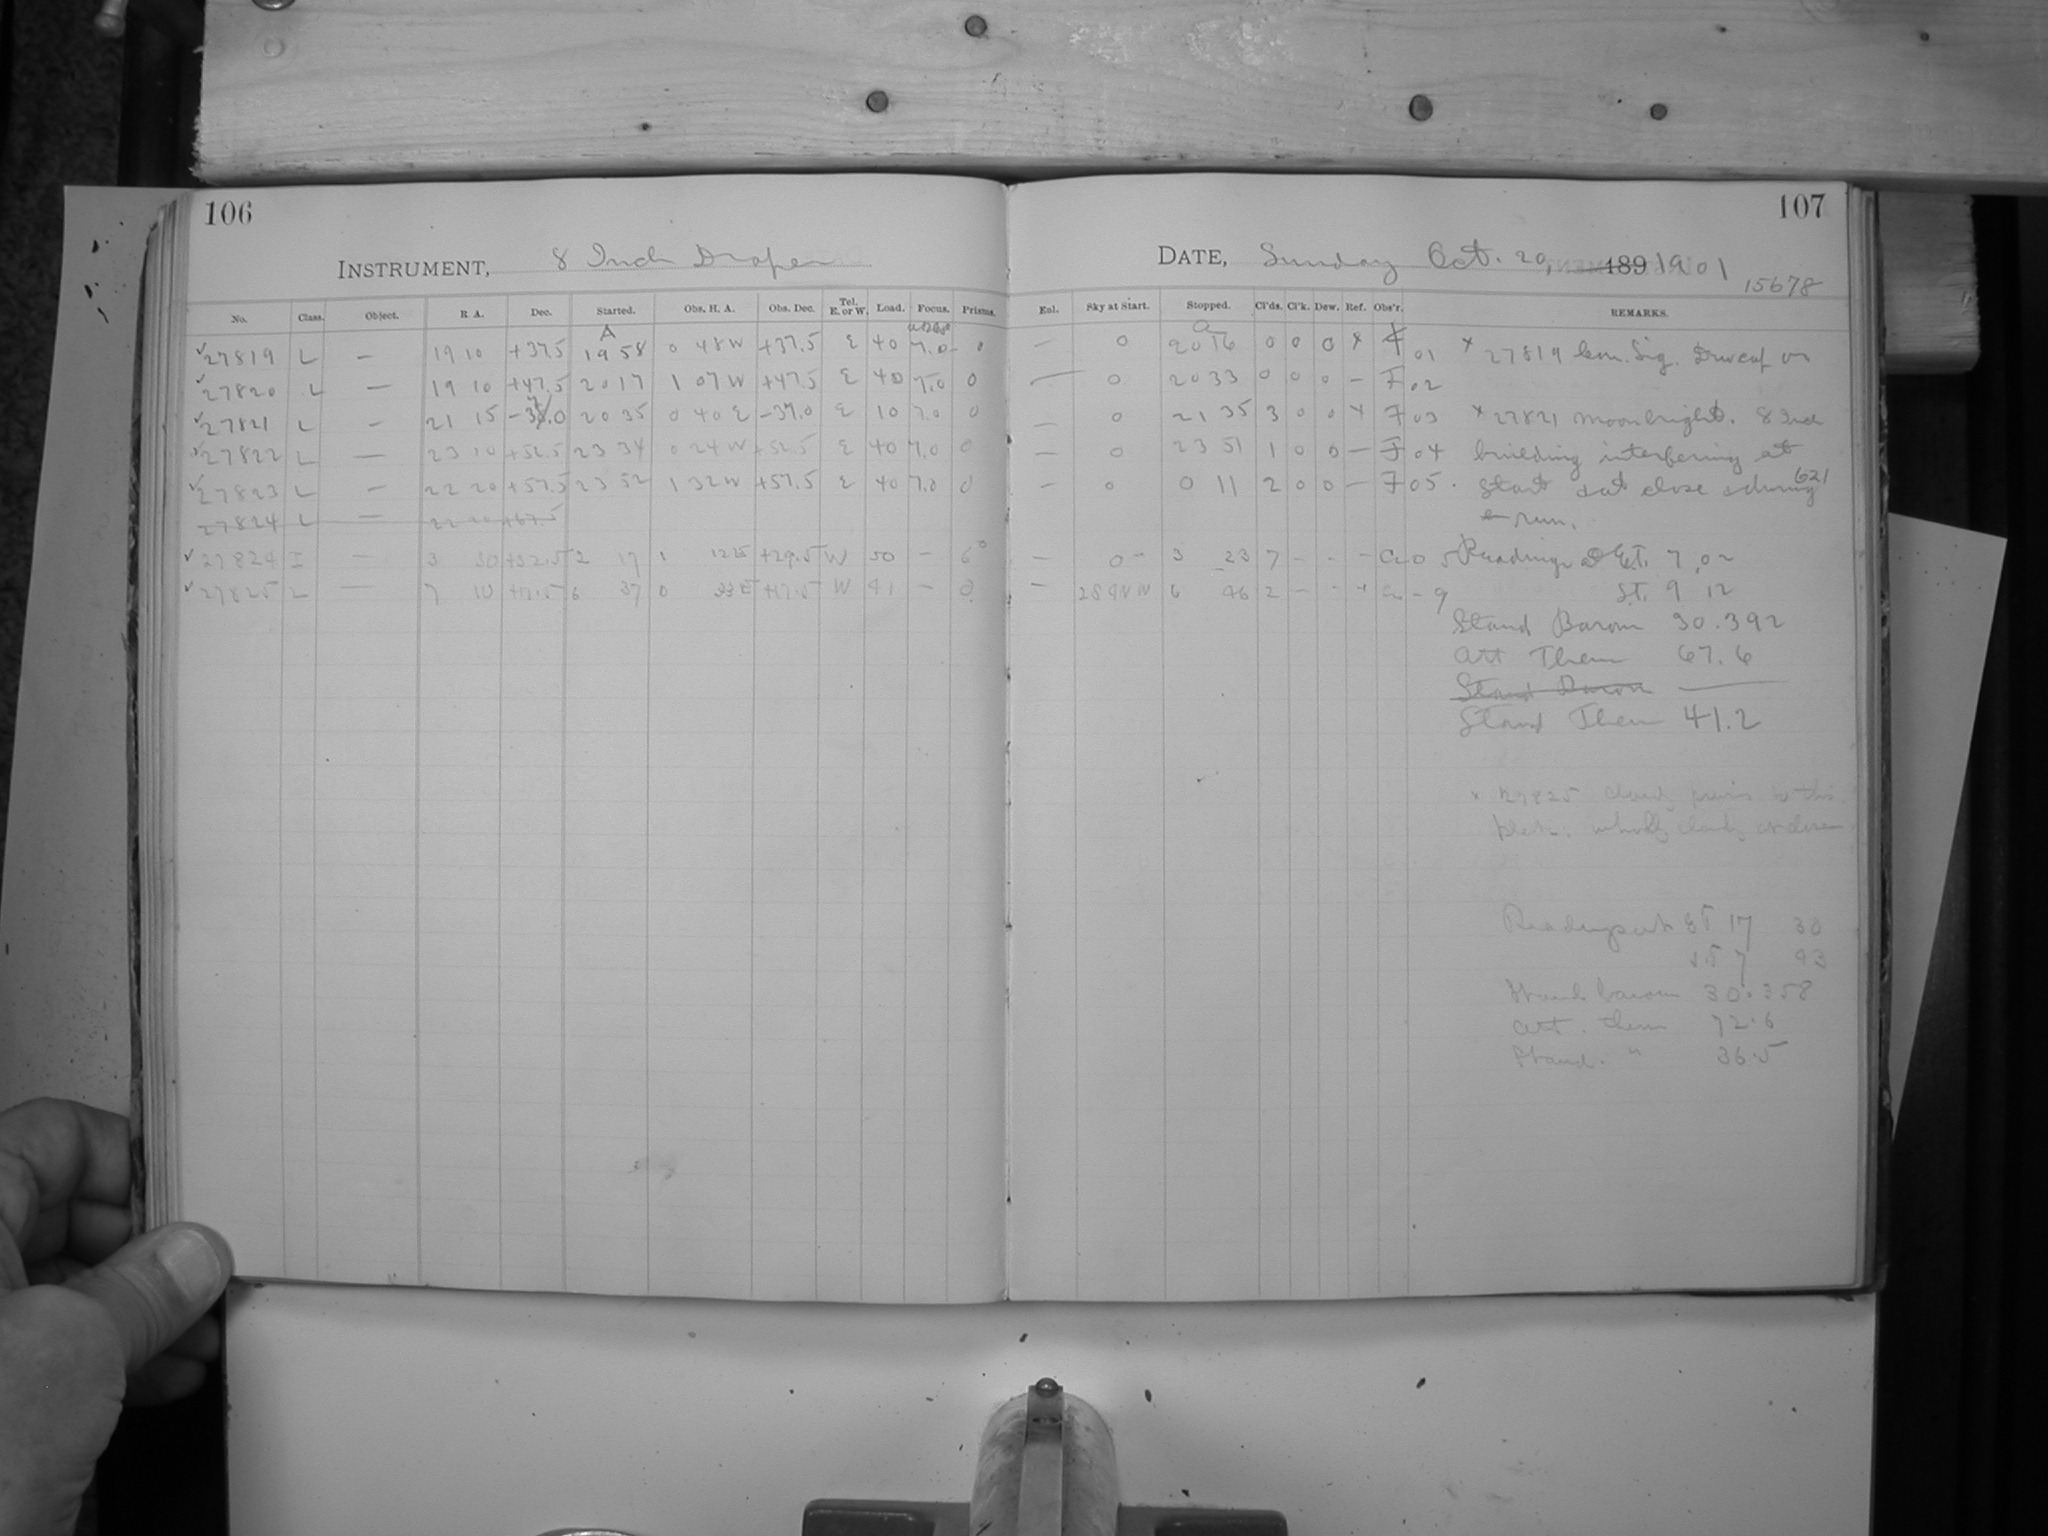 106
107
INSTRUMENT, 8 Inch Draper
DATE, Sunday Oct. 20, 189 1901
15678
No. Class. Object. R. A. Dec. Started. Obs. H. A. Obs. Dec. Tel. E. or W. Load. Focus. Prisms. Enl. Sky at Start. Stopped. Cl'ds. Cl'k. Dew. Ref. Obs'r. REMARKS.
27819 L — 19 10 +37.5 19 58 0 48 W +37.5 E 40 7.0 0 — 0 20 16 0 0 0 x F 01 x 27819 Sig.
27820 L — 19 10 +47.5 20 17 1 07 W +47.5 E 40 7.0 0 — 0 20 33 0 0 0 — F 02
27821 L — 21 15 20 35 0 40 E −37.0 E 10 7.0 0 — 0 21 35 3 0 0 x F 03 x 27821 moon bright. 8 Inch
27822 L — 23 10 +52.5 23 34 0 24 W +52.5 E 40 7.0 0 — 0 23 51 1 0 0 — F 04 building interfering at
27823 L — 22 20 +57.5 23 52 1 32 W +57.5 E 40 7.0 0 — 0 0 11 2 0 0 — F 05. start & at close & during
621
27824 L — 22 20 +67.5
run.
27824 I — 3 30 +32.5 2 17 1 +29.5 W 50 — — 0 3 23 7 – – – Readings ET. 7 02
27825 L — 7 10 +17.5 6 37 0 33 E +17.5 W 41 — 0 — 6 46 2 – – x ST. 9 12
Stand Barom 30.392
Att Therm 67.6
Stand Barom
Stand Therm 41.2
x 27825 cloudy previous to this
plate. wholly cloudy at close
Readings at ET 17 30
ST 7 43
Stand barom 30.358
Att. therm 72.6
Stand. " 36.5